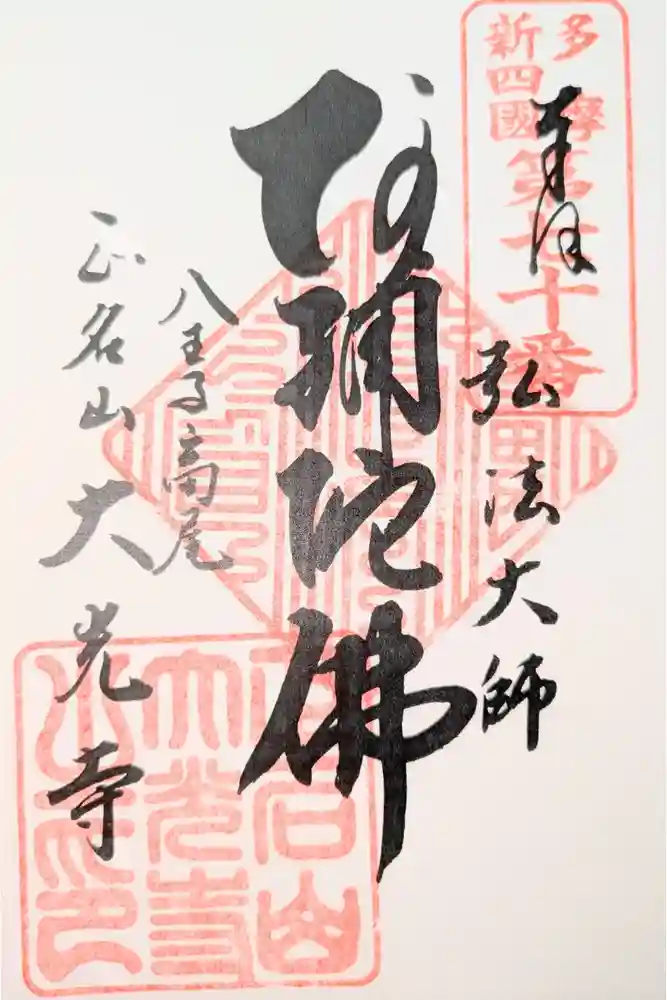 多摩
新四國
第七十番
奉拝
弘法大師
阿彌陀佛
八王子高尾
正名山大光寺
正名山
大光寺
之印